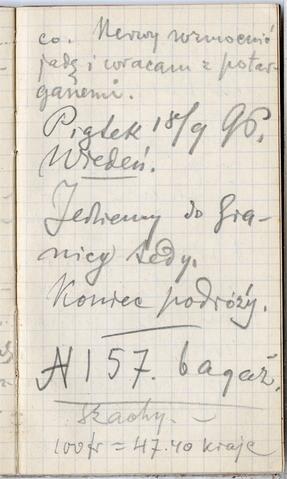 co. Nerwy wzmocnić
jadę i wracam z potar-
ganemi.
Piątek 18/9 96.
Wiedeń.
Jedziemy do Gra-
nicy tedy.
Koniec podróży.
N 157. bagaż.
Szachy. –
100 fr = 47.40 kraje